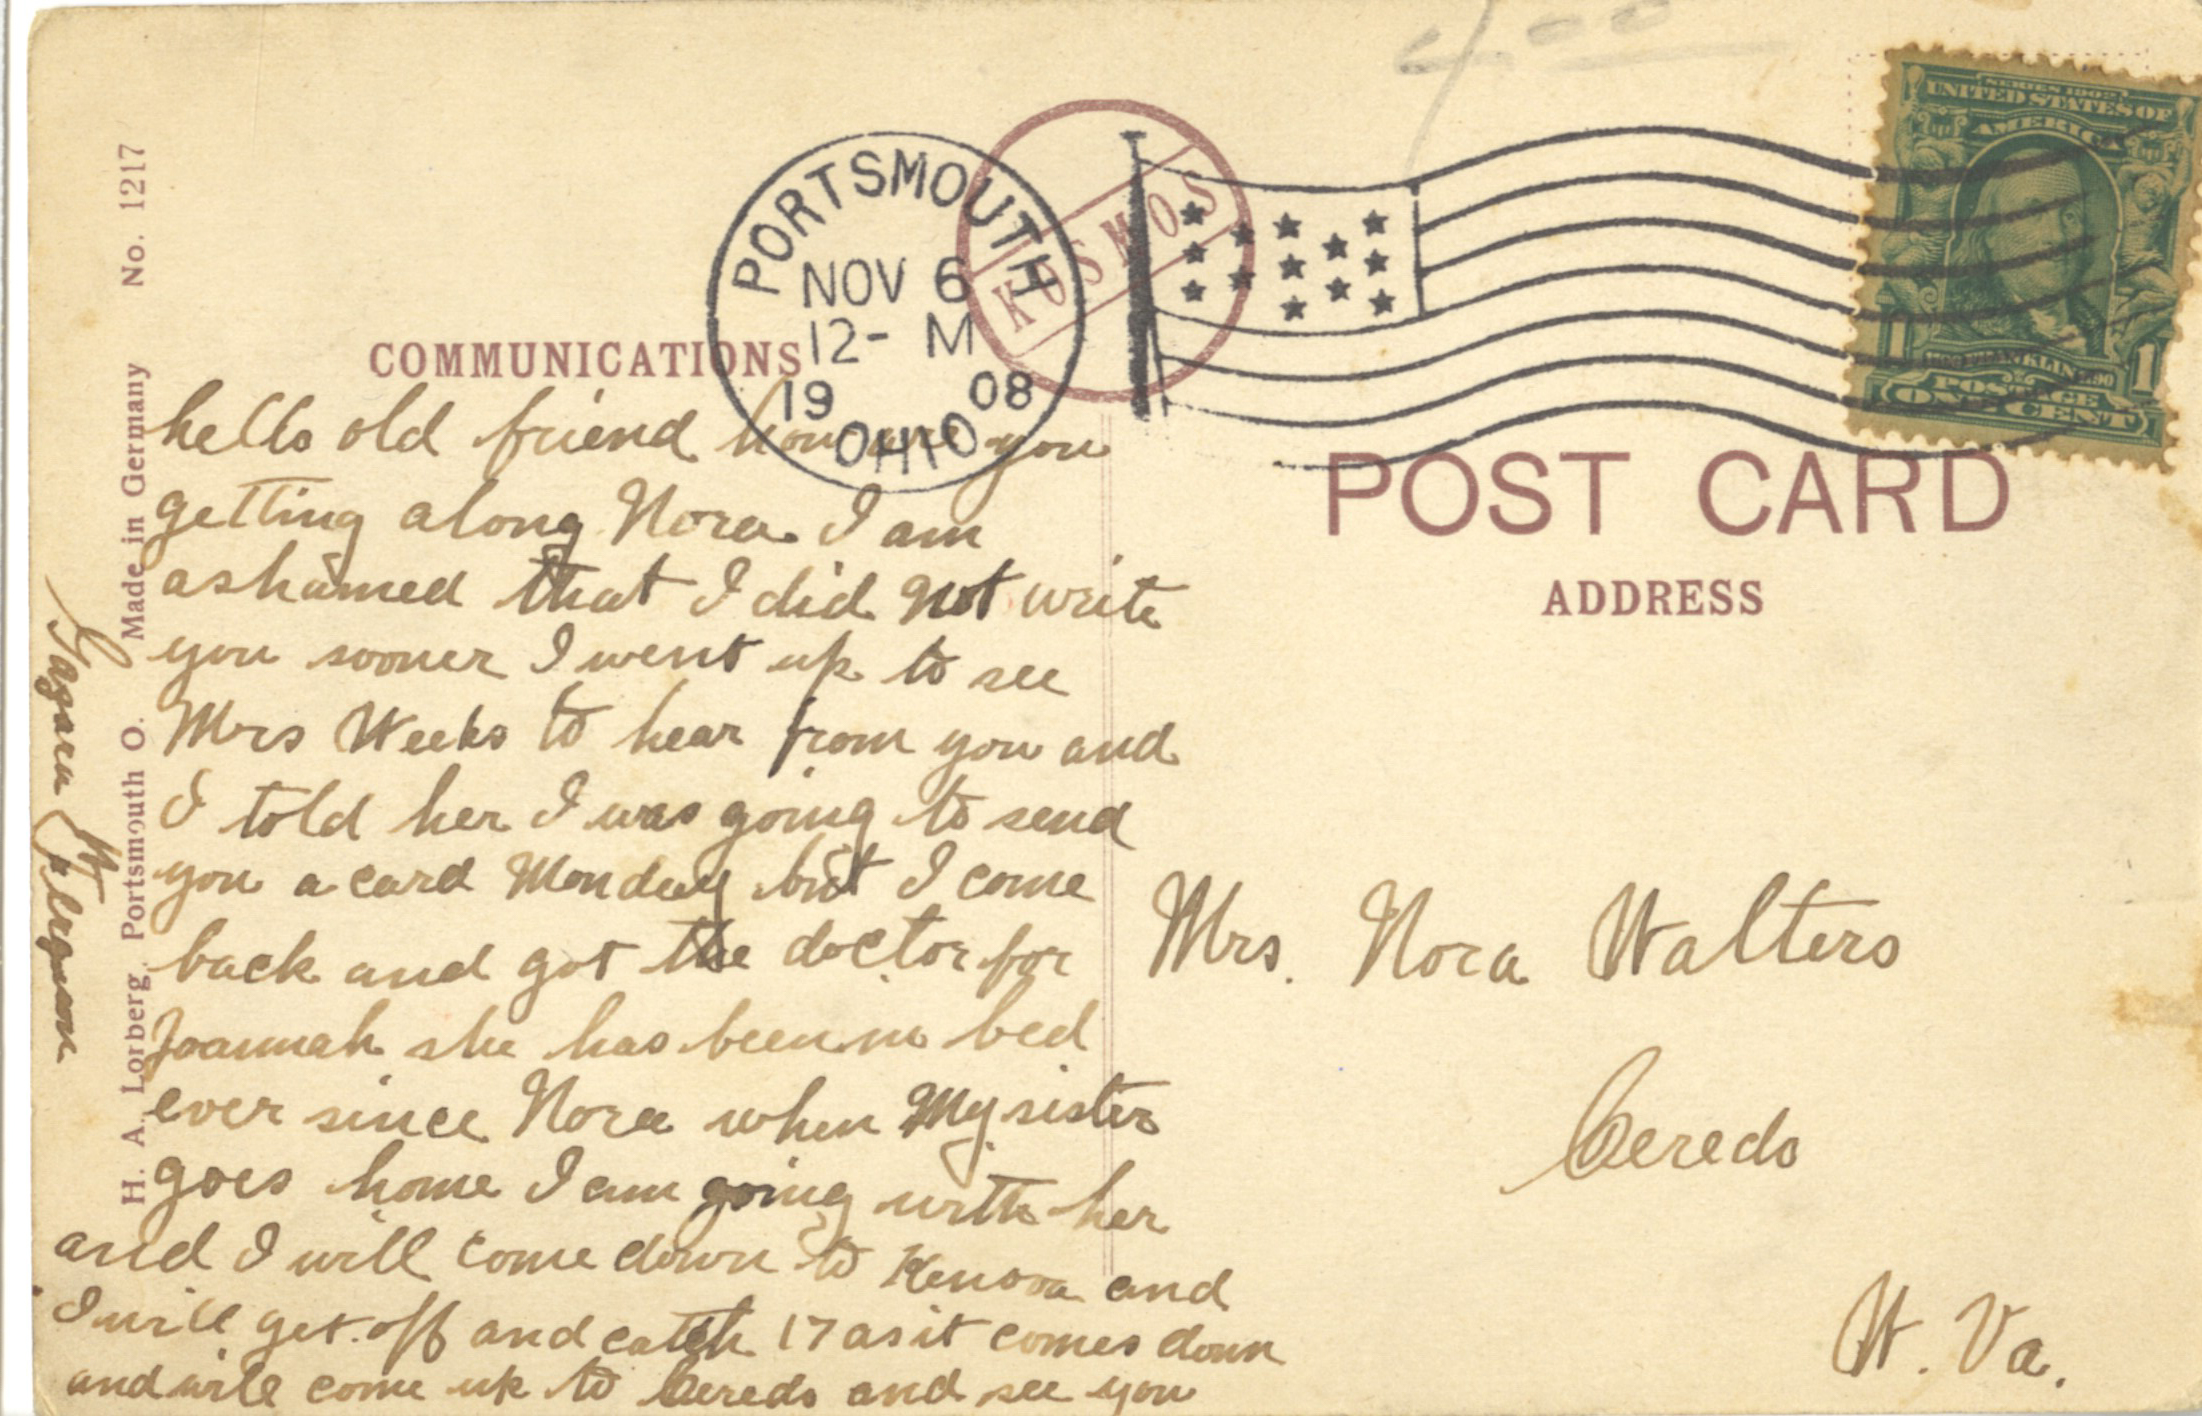 400
SERIES 1902
UNITED STATES OF
AMERICA
FRANKLIN
POSTAGE
1 ONE CENT 1
PORTSMOUTH
NOV 6
12- M
19 08
OHIO
KOSMOS
COMMUNICATIONS
POST CARD
ADDRESS
hello old friend how are you
getting along Nora. I am
ashamed that I did not write
you sooner I went up to see
Mrs Weeks to hear from you and
I told her I was going to send
you a card Monday but I come
back and got the doctor for
Joannah she has been in bed
ever since Nora when My sister
goes home I am going with her
and I will come down to Kenova and
I will get off and catch 17 as it comes down
and will come up to Ceredo and see you
Mrs. Nora Walters
Ceredo
W. Va.
H. A. Lorberg, Portsmouth O. Made in Germany No. 1217